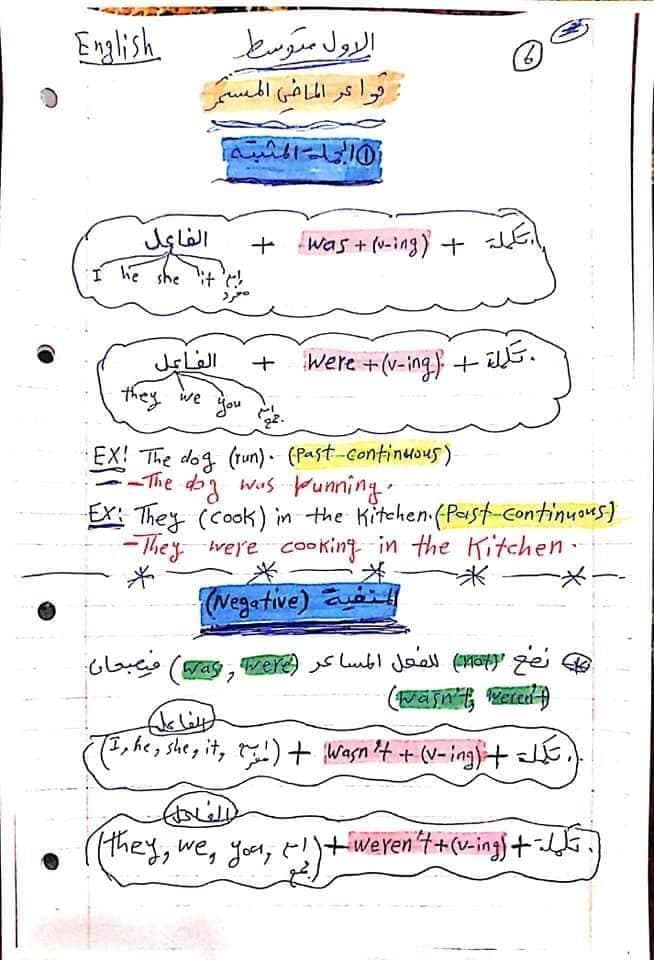 English الاول متوسط 6
قواعد الماضي المستمر
① الجملة المثبته
الفاعل + was + (v-ing) + تكملة.
I he she it اسم مفرد
الفاعل + were + (v-ing) + تكملة.
they we you اسم جمع
EX: The dog (run). (Past-continuous)
- The dog was running.
EX: They (cook) in the Kitchen. (Past-continuous)
- They were cooking in the Kitchen.
المنفية (Negative)
نضع (not) للفعل المساعد (was, were) فيصبحان
(wasn't, weren't)
الفاعل
(I, he, she, it, اسم مفرد) + wasn't + (v-ing) + تكملة.
الفاعل
(they, we, you, اسم جمع) + weren't + (v-ing) + تكملة.